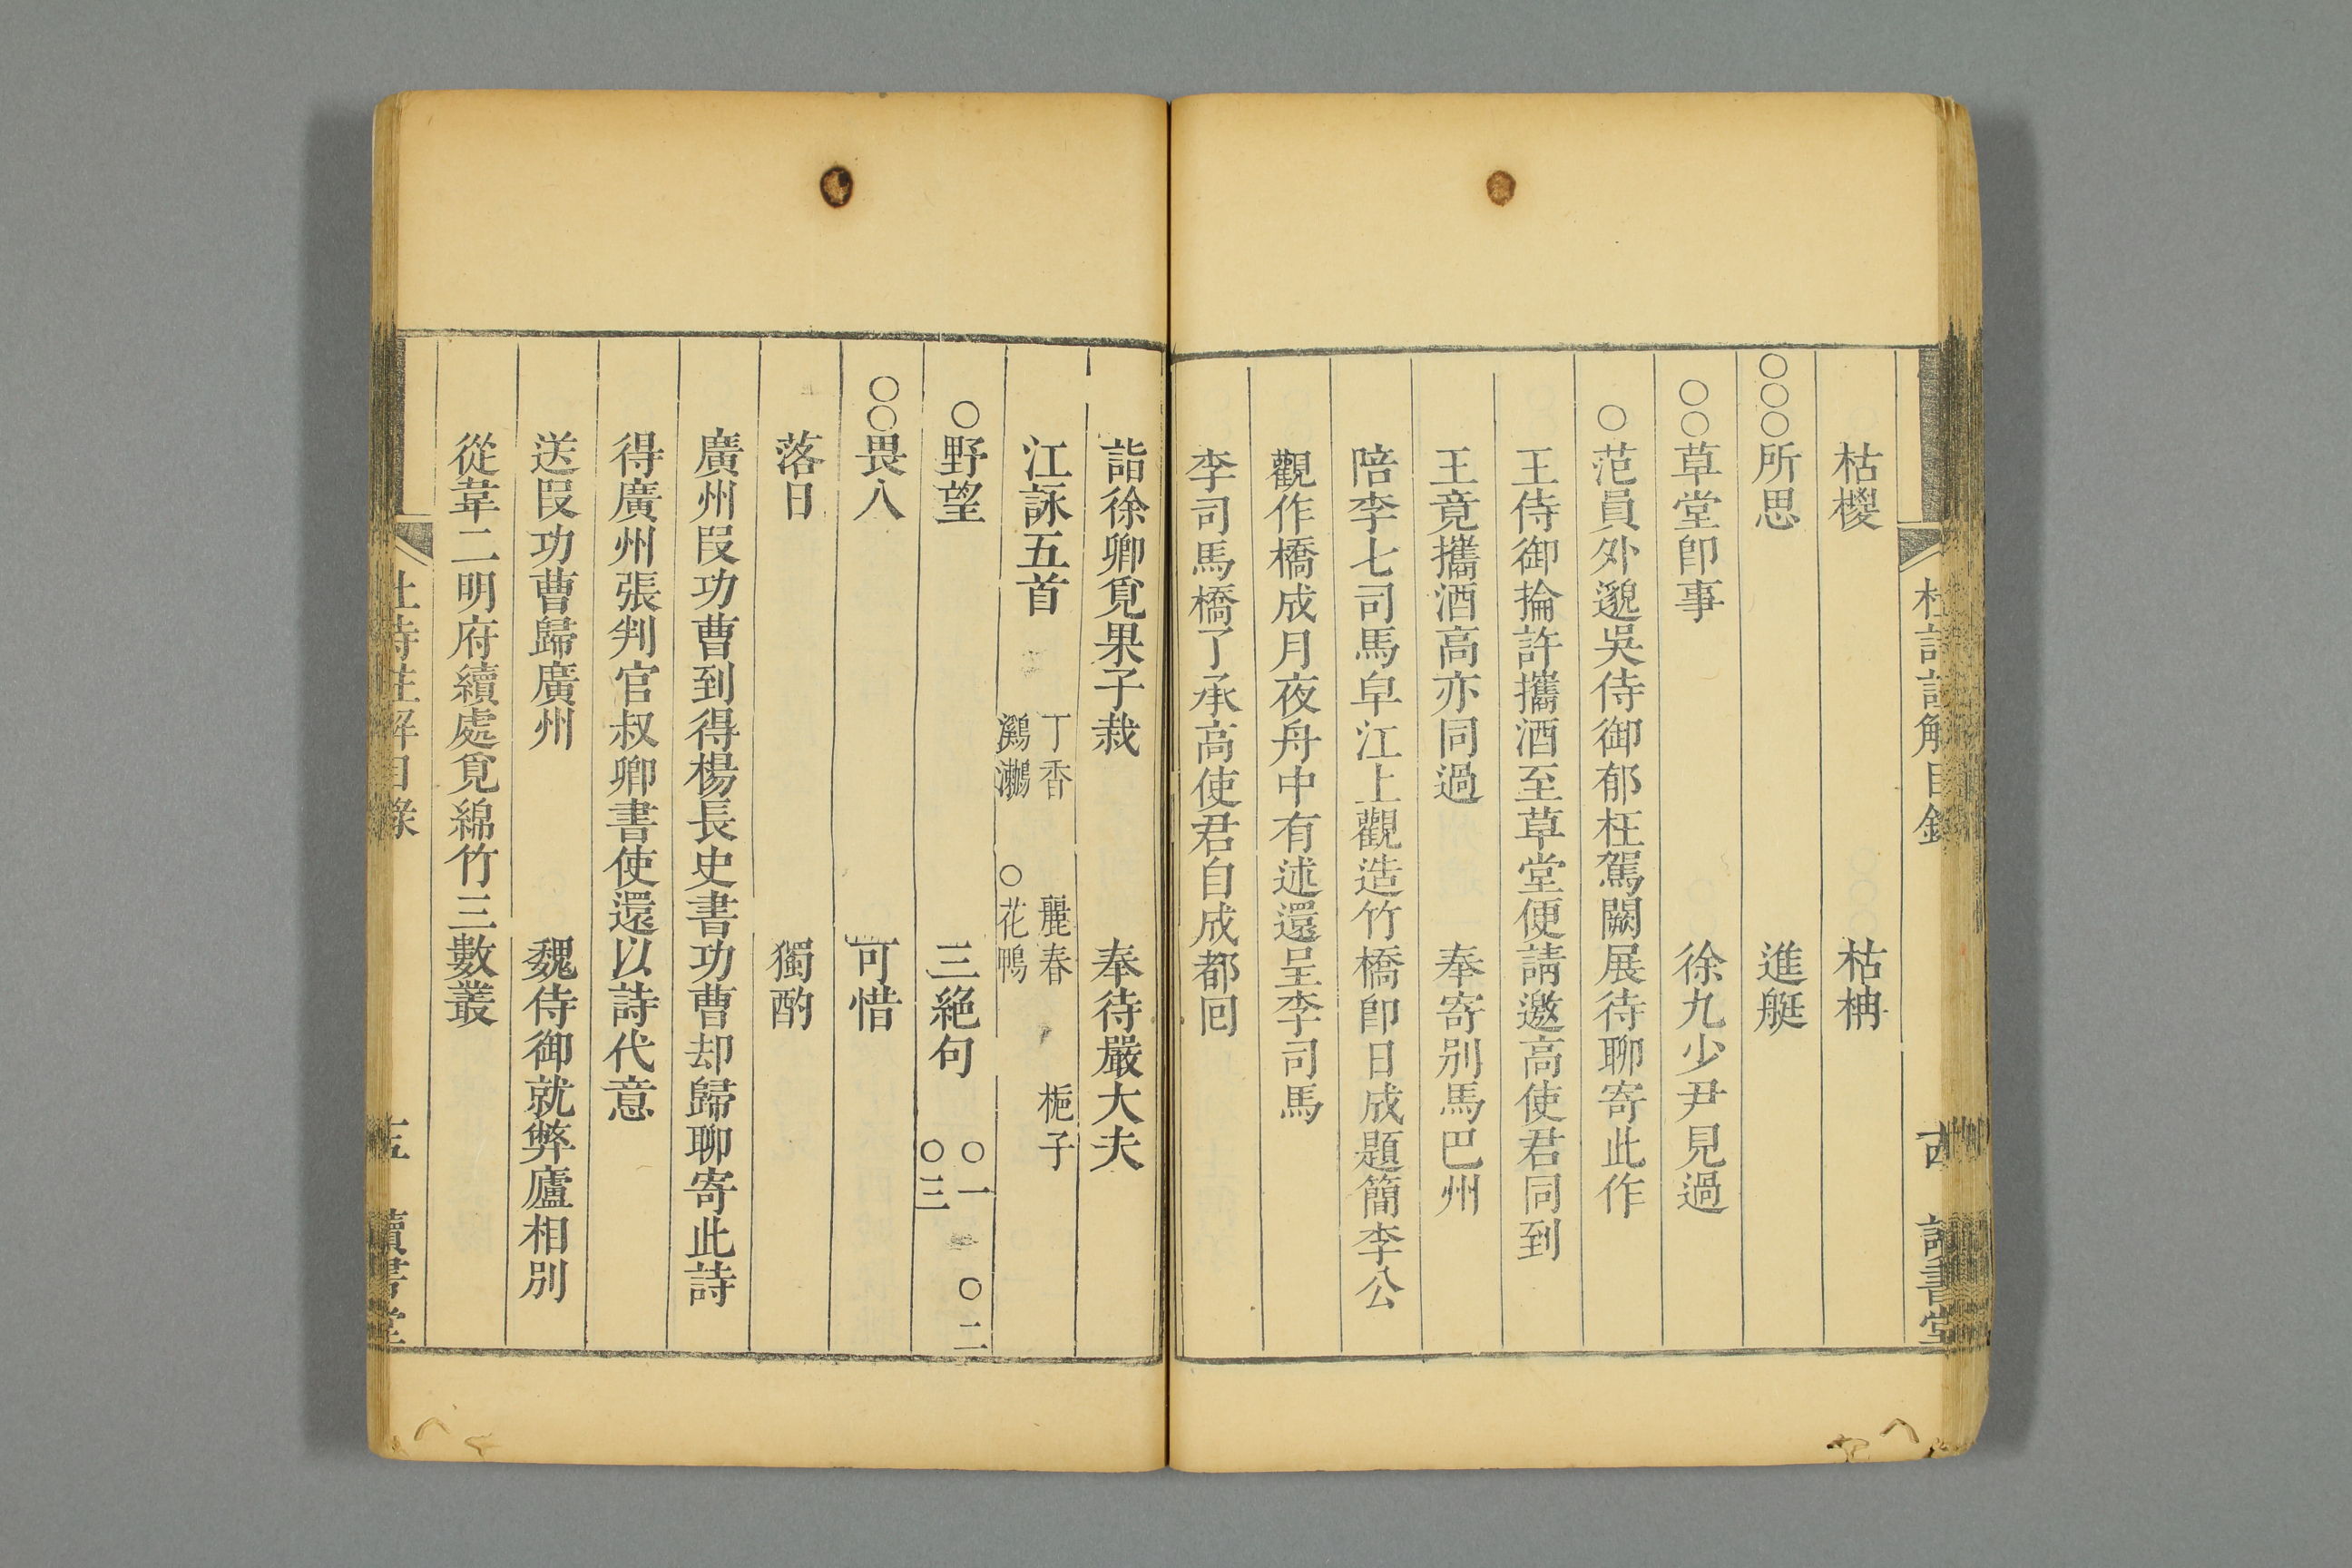 枯椶　枯柟
○○○所思　進艇
○○草堂卽事　徐九少尹見過
○范員外邈吳侍御郁枉駕闕展待聊寄此作
王侍御掄許攜酒至草堂便請邀高使君同到
王竟攜酒高亦同過　奉寄別馬巴州
陪李七司馬皁江上觀造竹橋卽日成題簡李公
觀作橋成月夜舟中有述還呈李司馬
李司馬橋了承高使君自成都囘
詣徐卿覓果子栽　奉待嚴大夫
江詠五首　丁香　麗春　梔子
鸂鷘　○花鴨
○野望　三絕句　○一　○二
○三
○○畏人　可惜
落日　獨酌
廣州段功曹到得楊長史書功曹却歸聊寄此詩
得廣州張判官叔卿書使還以詩代意
送段功曹歸廣州　魏侍御就弊廬相別
從韋二明府續處覓綿竹三數叢